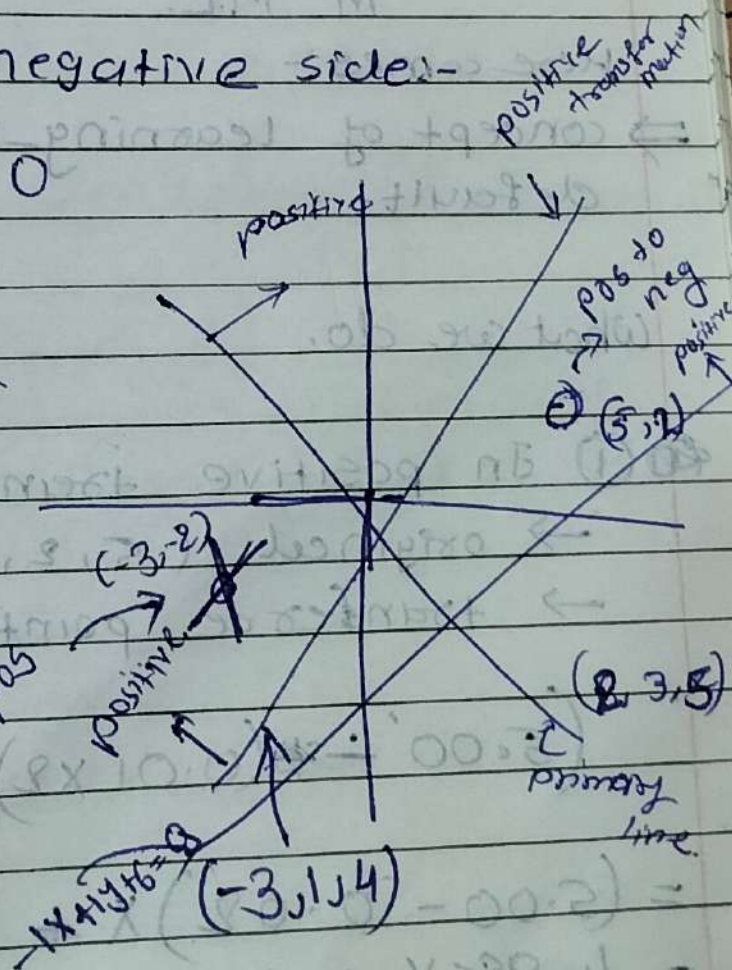 negative side:-
positive
transfor
mation
0
positive
pos to
neg
positive
(5,2)
(-3,-2)
positive
os
(2, 3, 5)
line.
-1x+1y+6=0
(-3,1,4)